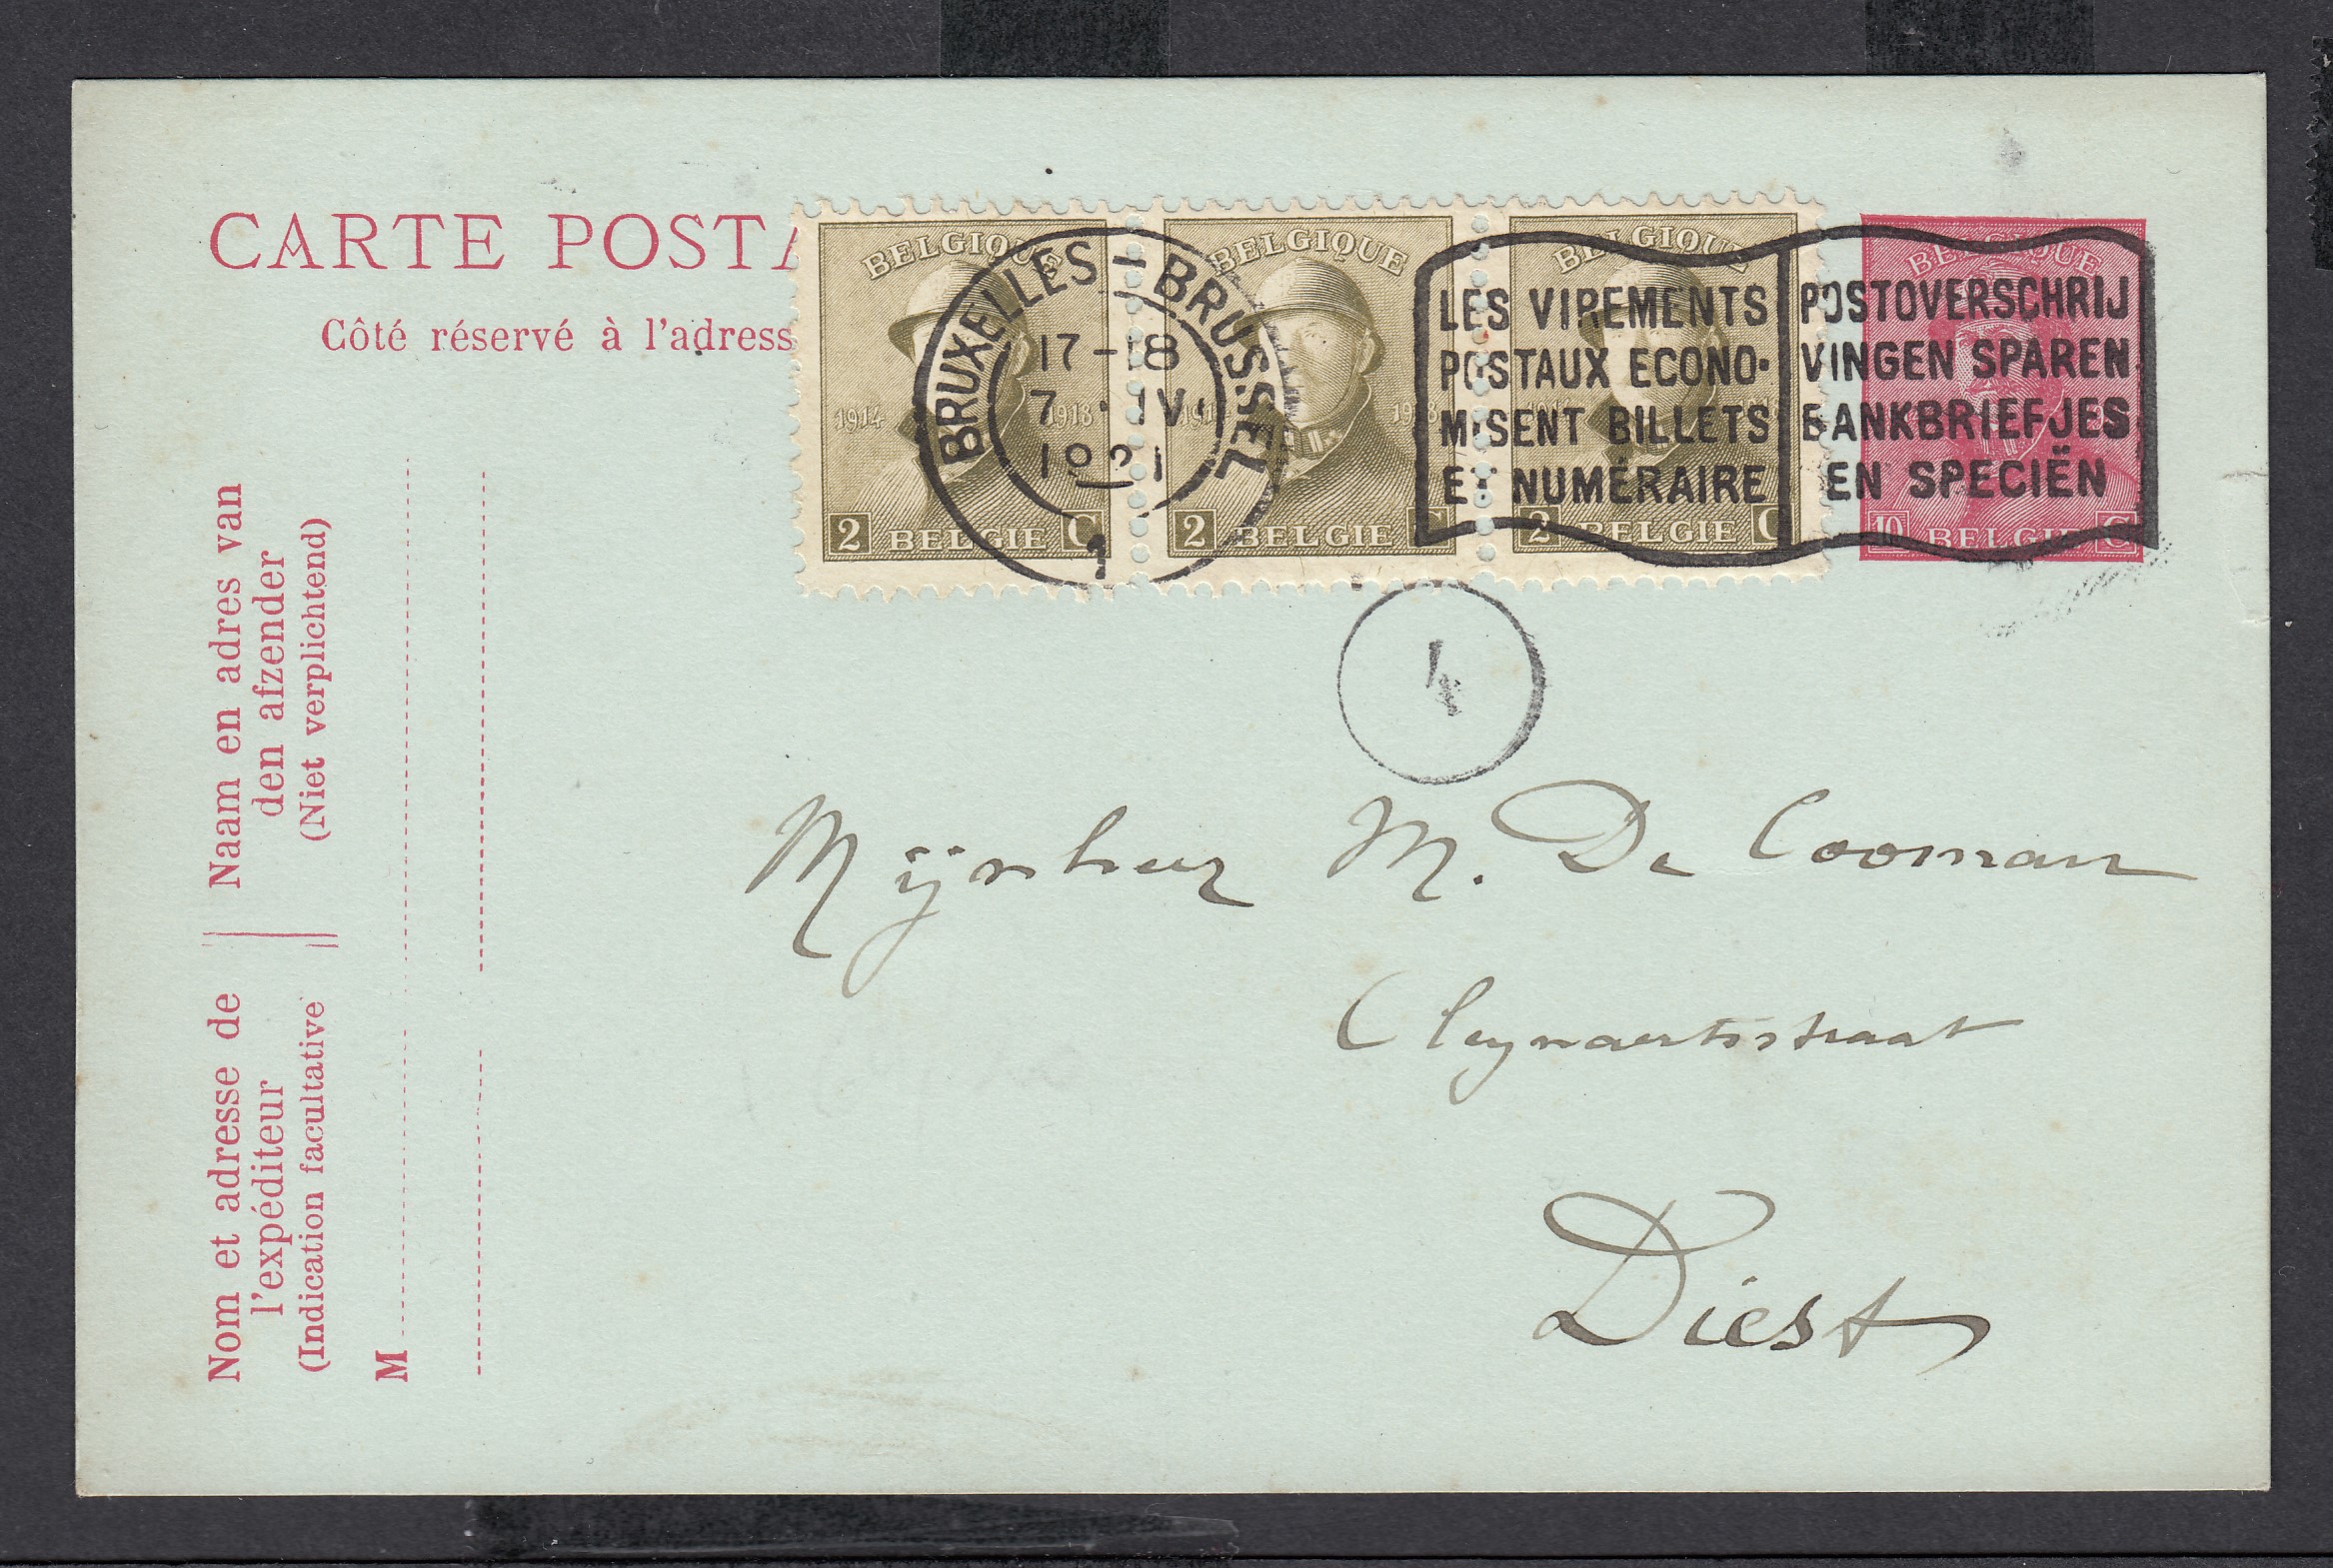 CARTE POSTA
Côté réservé à l'adress
BELGIQUE
1914 1918
2 BELGIE C
BELGIQUE
191 1918
2 BELGIE C
BELGIQUE
2 BELGIE C
BELGIQUE
10 BELGIE C
BRUXELLES - BRUSSEL
17-18
7 · IV ·
1921
1
LES VIREMENTS
POSTAUX ECONO-
MISENT BILLETS
ET NUMÉRAIRE
POSTOVERSCHRIJ
VINGEN SPAREN
BANKBRIEFJES
EN SPECIËN
4
Naam en adres van
den afzender
(Niet verplichtend)
Nom et adresse de
l'expéditeur
(Indication facultative
M
Mijnheer M. De Cooman
Cleynaertsstraat
Diest